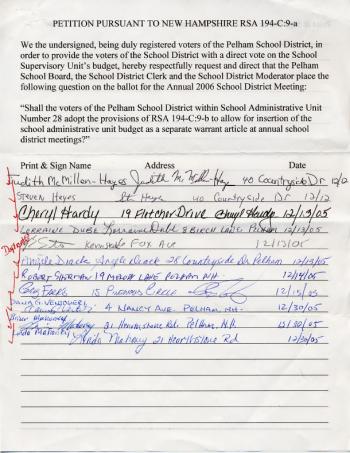 PETITION PURSUANT TO NEW HAMPSHIRE RSA 194-C:9-a
We the undersigned, being duly registered voters of the Pelham School District, in
order to provide the voters of the School District with a direct vote on the School
Supervisory Unit's budget, hereby respectfully request and direct that the Pelham
School Board, the School District Clerk and the School District Moderator place the
following question on the ballot for the Annual 2006 School District Meeting:
"Shall the voters of the Pelham School District within School Administrative Unit
Number 28 adopt the provisions of RSA 194-C:9-b to allow for insertion of the
school administrative unit budget as a separate warrant article at annual school
district meetings?"
Print & Sign Name Address Date
Judith McMillen-Hayes Judith McMillen-Hayes 40 Countryside Dr 12/12
STEVEN Hayes 40 Countryside Dr 12/12
Cheryl Hardy 19 Fletcher Drive Cheryl Hardy 12/13/05
LORRAINE DUBE Lorraine Dube 8 BIRCH LANE PELHAM 12/13/05
Fox Ave 12/13/05
Angele Diack Angele Diack 28 Countryside Dr Pelham 12/13/05
ROBERT SHERMAN 19 LANE PELHAM NH 12/14/05
15 CIRCLE 12/15/05
4 NANCY AVE. PELHAM, NH. 12/30/05
Brian Mahoney 21 Hearthstone Rd. Pelham, N.H. 12/30/05
Linda Mahoney Linda Mahoney 21 Hearthstone Rd 12/30/05